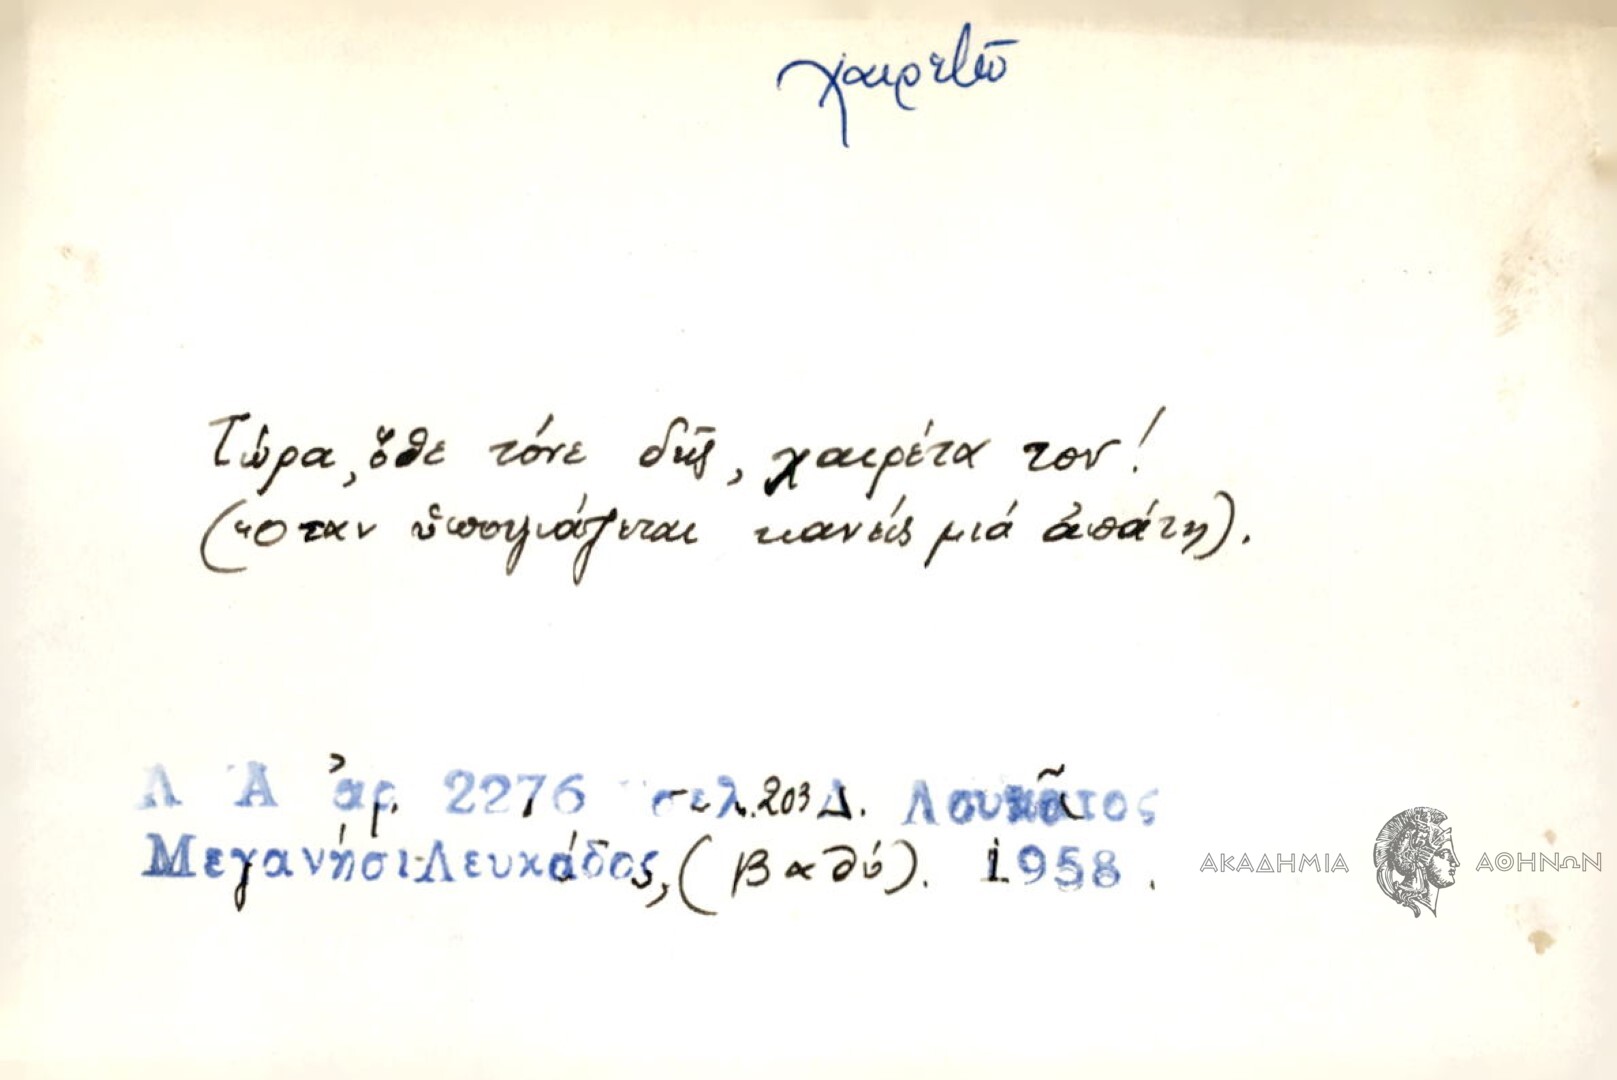 χαιρετῶ
Τώρα, ὅθε τόνε δῇς, χαιρέτα τον!
(Ὅταν ὑποψιάζεται κανείς μιά ἀπάτη).
Λ Α ἀρ. 2276 σελ. 203 Δ. Λουκᾶτος
Μεγανήσι Λευκάδος, (Βαθύ). 1958.
ΑΚΑΔΗΜΙΑ ΑΘΗΝΩΝ